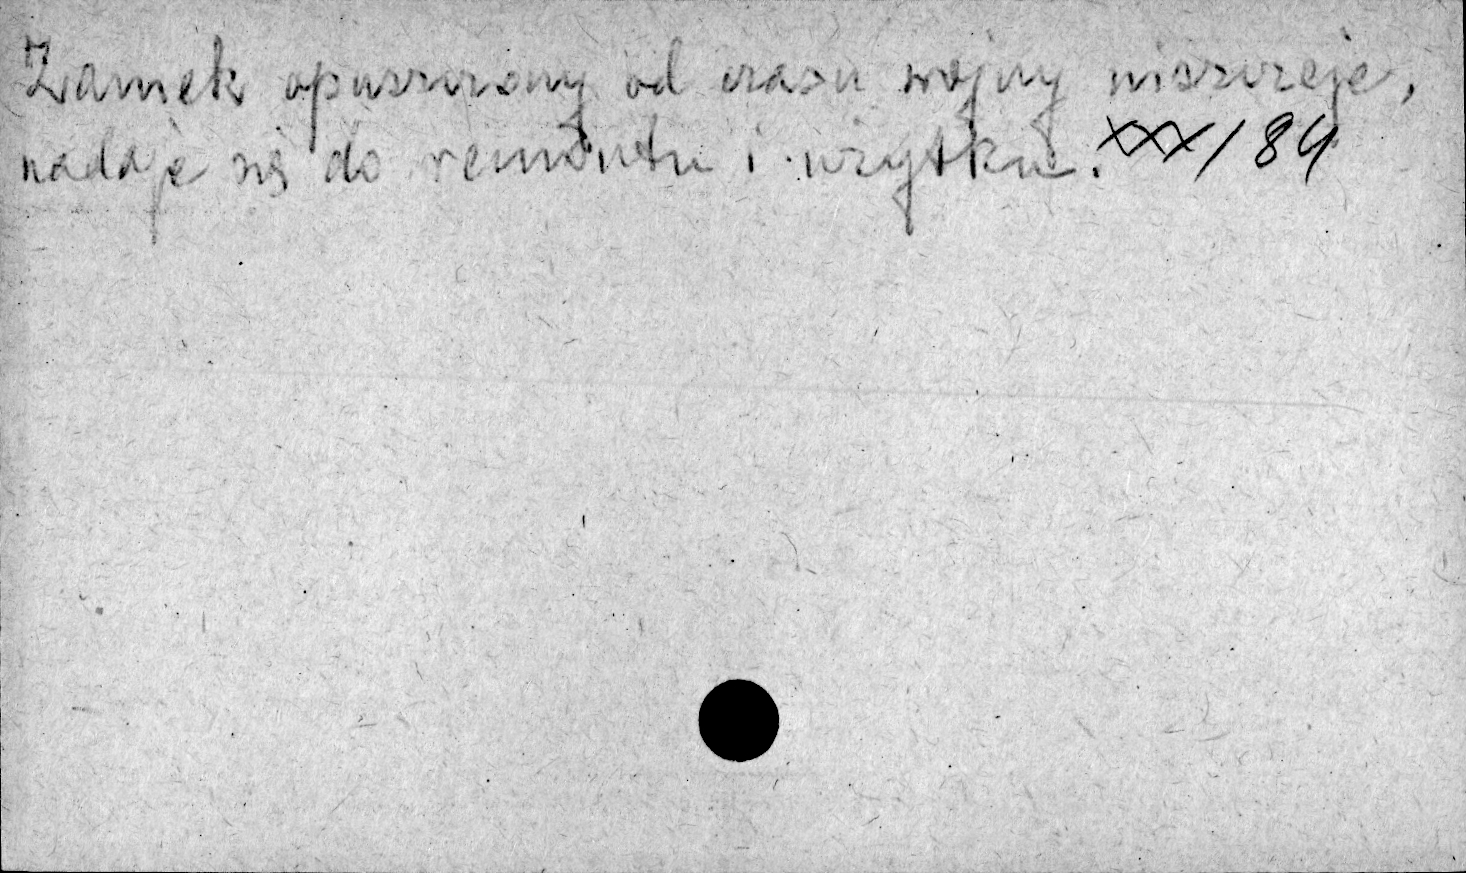 Zamek opuszczony od czasu wojny niszczeje,
nadaje się do remontu i użytku. XXX/84